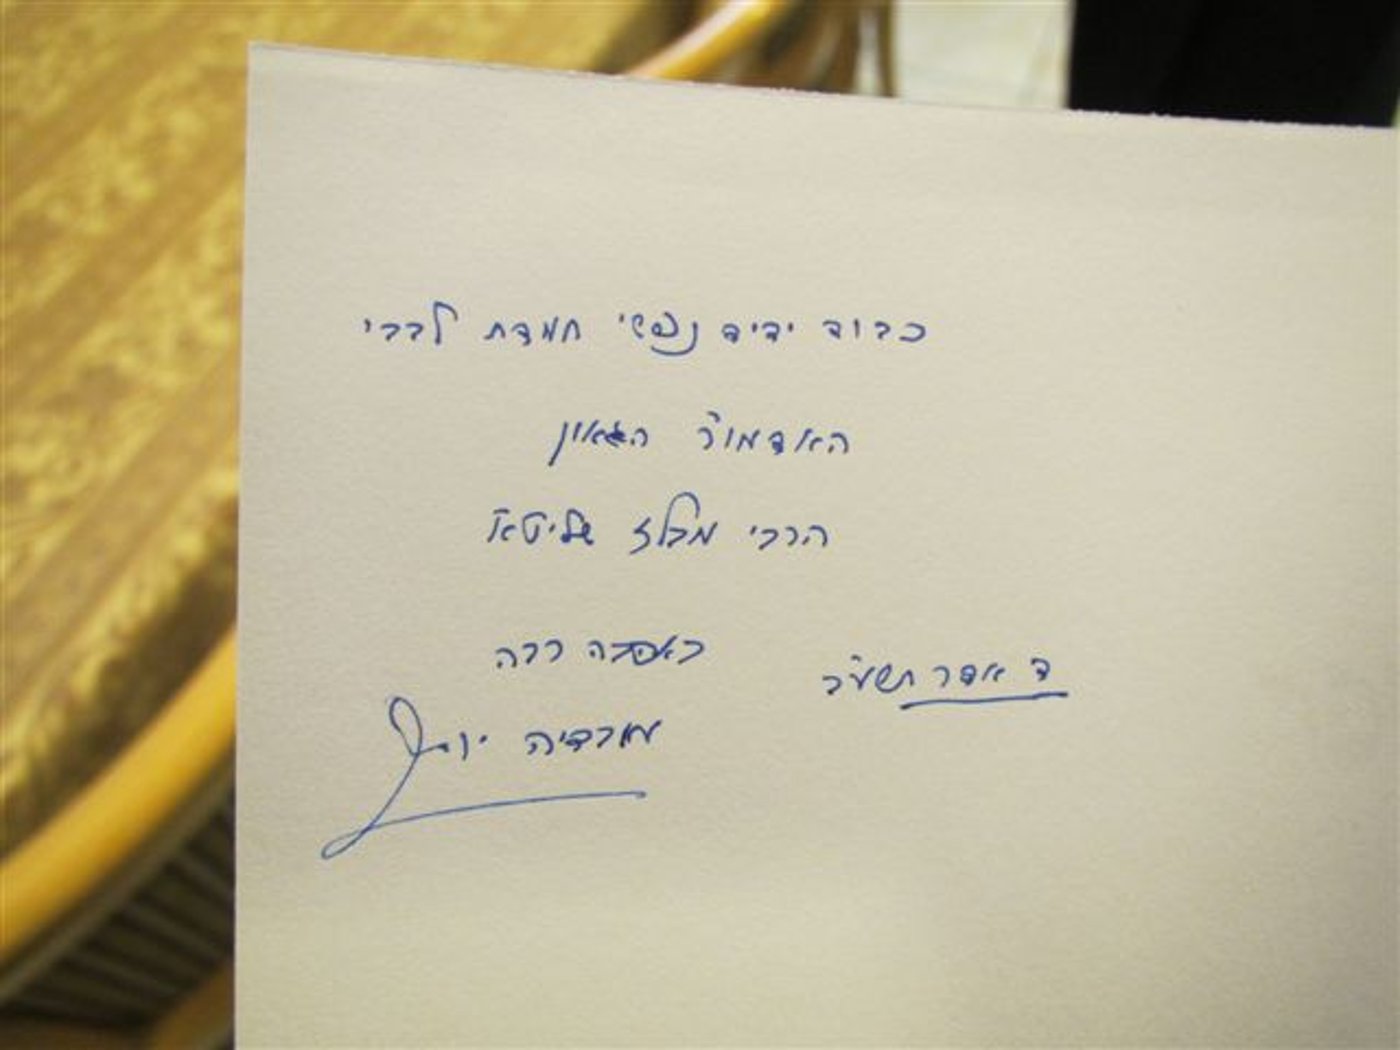 כבוד ידיד נפשי חמדת לבבי
האדמו"ר הגאון
הרבי מבלז שליט"א
באהבה רבה
ד אדר תשע"ב
עובדיה יוסף